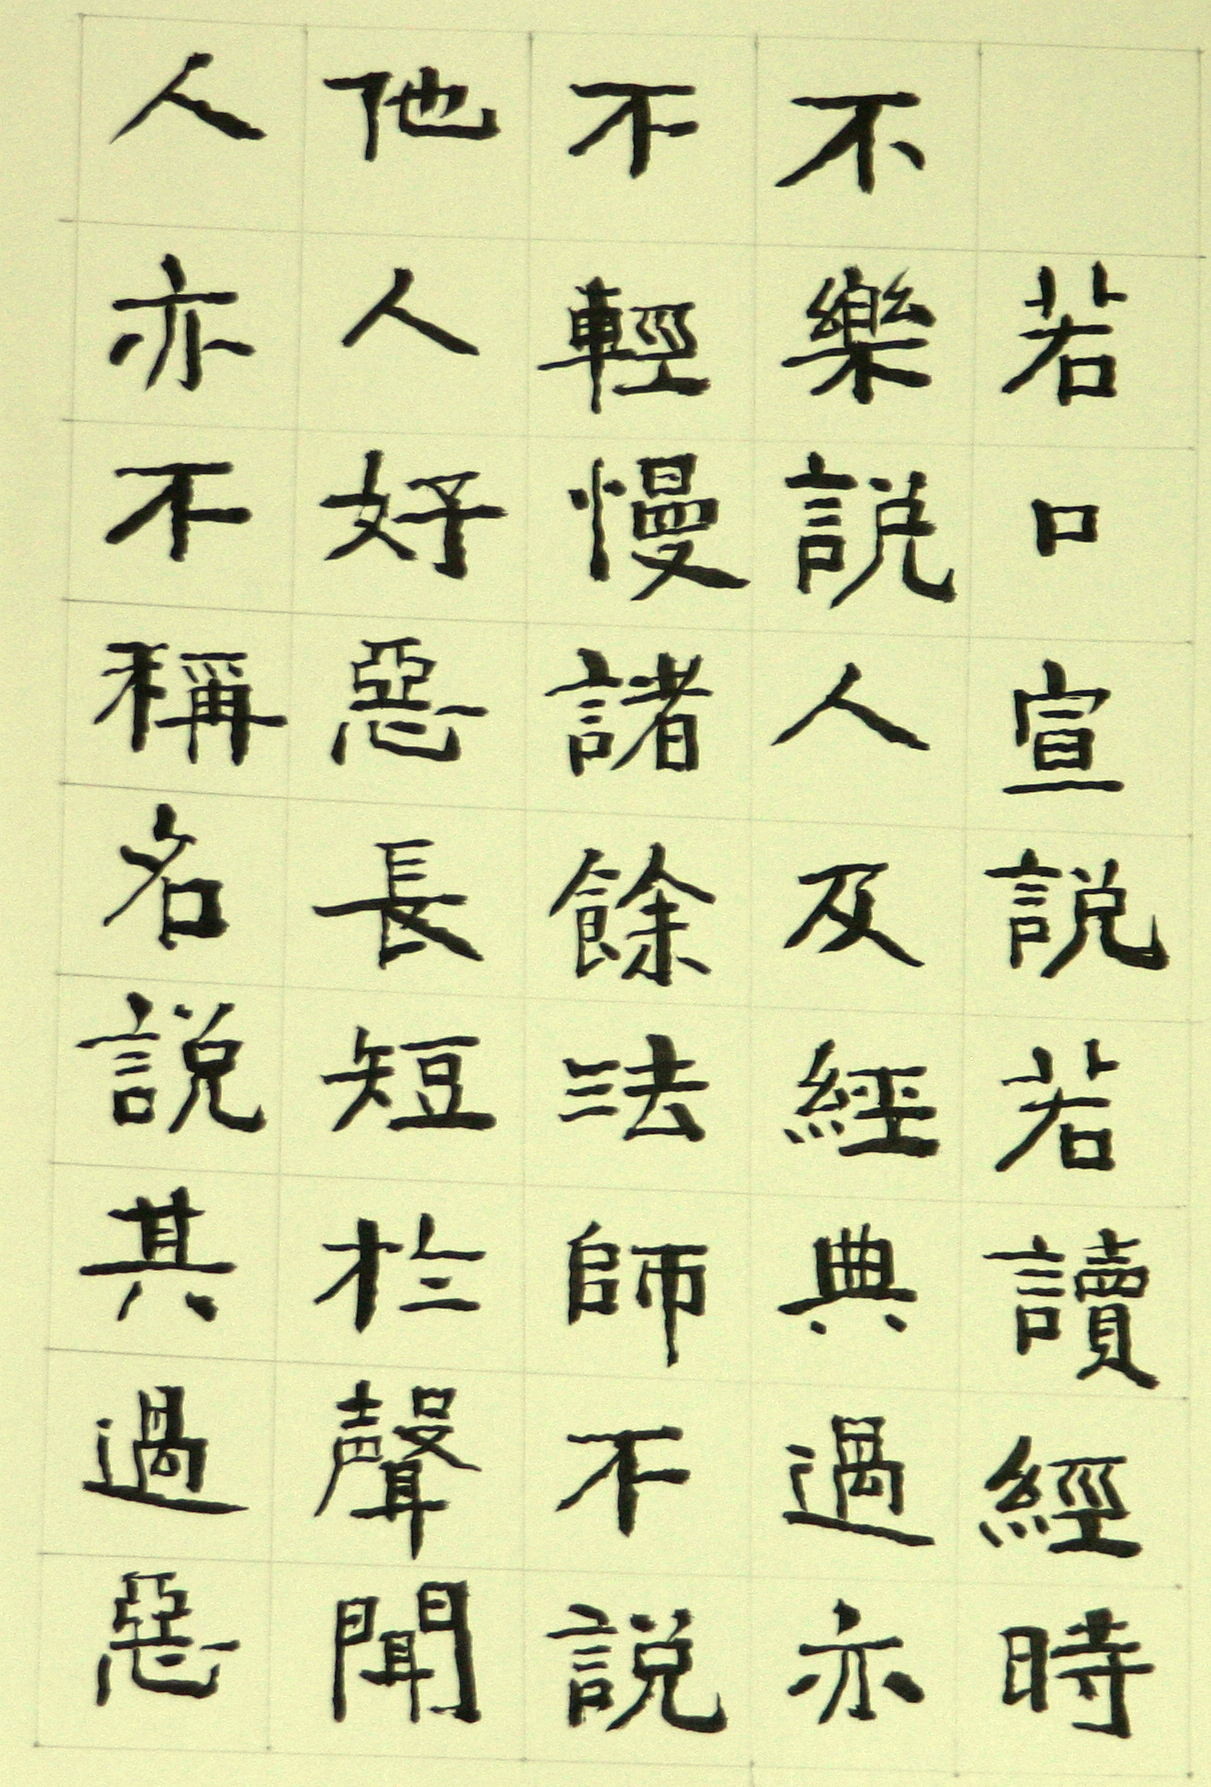 若口宣說若讀經時
不樂說人及經典過亦
不輕慢諸餘法師不說
他人好惡長短於聲聞
人亦不稱名說其過惡